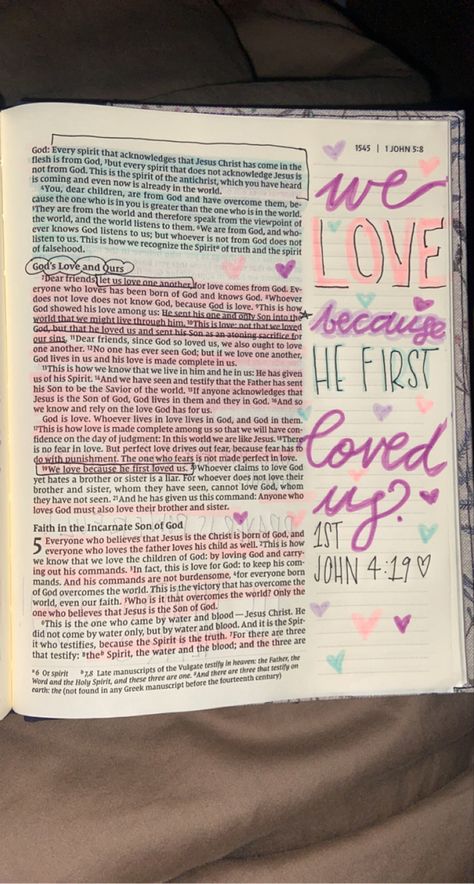 1545 | 1 JOHN 5:8
God: Every spirit that acknowledges that Jesus Christ has come in the
flesh is from God, ³but every spirit that does not acknowledge Jesus is
not from God. This is the spirit of the antichrist, which you have heard
is coming and even now is already in the world.
⁴You, dear children, are from God and have overcome them, be-
cause the one who is in you is greater than the one who is in the world.
⁵They are from the world and therefore speak from the viewpoint of
the world, and the world listens to them. ⁶We are from God, and who-
ever knows God listens to us; but whoever is not from God does not
listen to us. This is how we recognize the Spiritᵃ of truth and the spirit
of falsehood.
God's Love and Ours
⁷Dear friends, let us love one another, for love comes from God. Ev-
eryone who loves has been born of God and knows God. ⁸Whoever
does not love does not know God, because God is love. ⁹This is how
God showed his love among us: He sent his one and only Son into the
world that we might live through him. ¹⁰This is love: not that we loved
God, but that he loved us and sent his Son as an atoning sacrifice for
our sins. ¹¹Dear friends, since God so loved us, we also ought to love
one another. ¹²No one has ever seen God; but if we love one another,
God lives in us and his love is made complete in us.
¹³This is how we know that we live in him and he in us: He has given
us of his Spirit. ¹⁴And we have seen and testify that the Father has sent
his Son to be the Savior of the world. ¹⁵If anyone acknowledges that
Jesus is the Son of God, God lives in them and they in God. ¹⁶And so
we know and rely on the love God has for us.
God is love. Whoever lives in love lives in God, and God in them.
¹⁷This is how love is made complete among us so that we will have con-
fidence on the day of judgment: In this world we are like Jesus. ¹⁸There
is no fear in love. But perfect love drives out fear, because fear has to
do with punishment. The one who fears is not made perfect in love.
¹⁹We love because he first loved us. ²⁰Whoever claims to love God
yet hates a brother or sister is a liar. For whoever does not love their
brother and sister, whom they have seen, cannot love God, whom
they have not seen. ²¹And he has given us this command: Anyone who
loves God must also love their brother and sister.
Faith in the Incarnate Son of God
5 Everyone who believes that Jesus is the Christ is born of God, and
everyone who loves the father loves his child as well. ²This is how
we know that we love the children of God: by loving God and carry-
ing out his commands. ³In fact, this is love for God: to keep his com-
mands. And his commands are not burdensome, ⁴for everyone born
of God overcomes the world. This is the victory that has overcome the
world, even our faith. ⁵Who is it that overcomes the world? Only the
one who believes that Jesus is the Son of God.
⁶This is the one who came by water and blood — Jesus Christ. He
did not come by water only, but by water and blood. And it is the Spir-
it who testifies, because the Spirit is the truth. ⁷For there are three
that testify: ⁸theᵇ Spirit, the water and the blood; and the three are
ᵃ6 Or spirit ᵇ7,8 Late manuscripts of the Vulgate testify in heaven: the Father, the
Word and the Holy Spirit, and these three are one. ⁸And there are three that testify on
earth: the (not found in any Greek manuscript before the fourteenth century)
we
LOVE
because
HE FIRST
loved
us?
1ST
JOHN 4:19